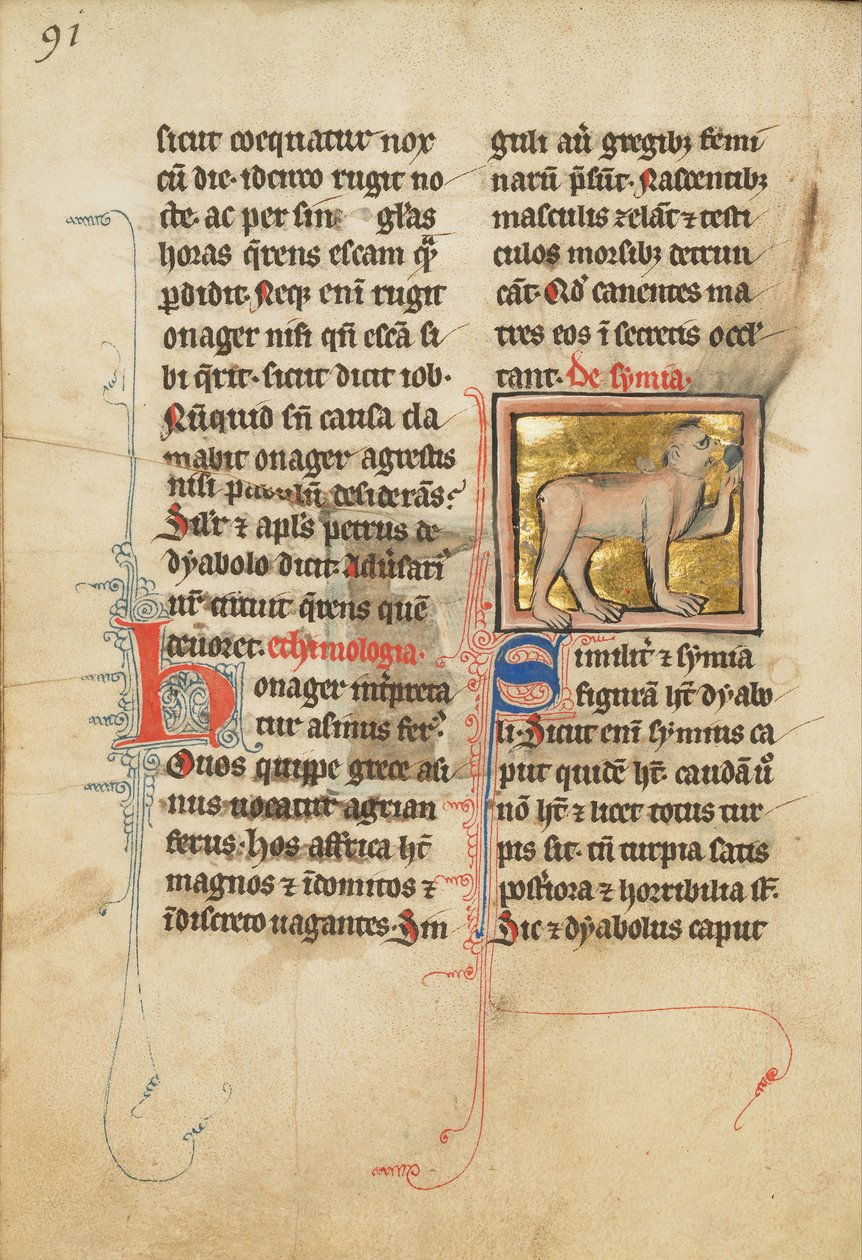 91
sicut coequatur nox
cū die· idcirco rugit no
cte· ac per sin gl̄as
horas q̄rens escam qᷓ
ꝑdidit· Neqꝫ enī rugit
onager nisi qn̄ escā si
bi q̄rit· sicut dicit iob·
Nūquid sn̄ causa cla
mabit onager agrestis
nisi pabulū desiderās?
Sil'r ⁊ apl's petrus de
dyabolo dicit· Adūsari'
ur̄ circuit q̄rens quē
deuoret· ethimologia·
honager int̄preta
tur asinus fer'·
Quos quippe grece asi
nus uocatur agrian
ferus· hos affrica ht̄
magnos ⁊ īdomitos ⁊
īdiscreto uagantes· Sin
guli aū gregibꝫ femi
narū p̄sūt· Nascentibꝫ
masculis zelāt ⁊ testi
culos morsibꝫ detrun
cāt· Qd' canentes ma
tres eos ī secretis occl'
tant· De symia·
Similit' ⁊ symia
figurā ht̄ dyabo
li· Sicut enī symius ca
put quidē ht̄· caudā uͦ
nō ht̄ ⁊ licet totus tur
pis sit· tn̄ turpia satis
post'iora ⁊ horribilia st̄·
Sic ⁊ dyabolus caput